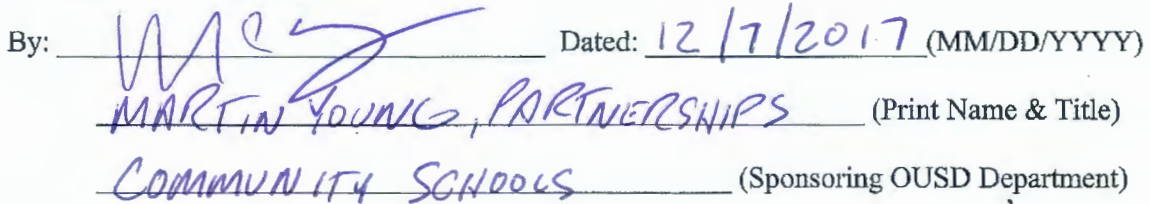 By: Dated: 12/7/2017 (MM/DD/YYYY)
MARTIN YOUNG, PARTNERSHIPS (Print Name & Title)
COMMUNITY SCHOOLS (Sponsoring OUSD Department)